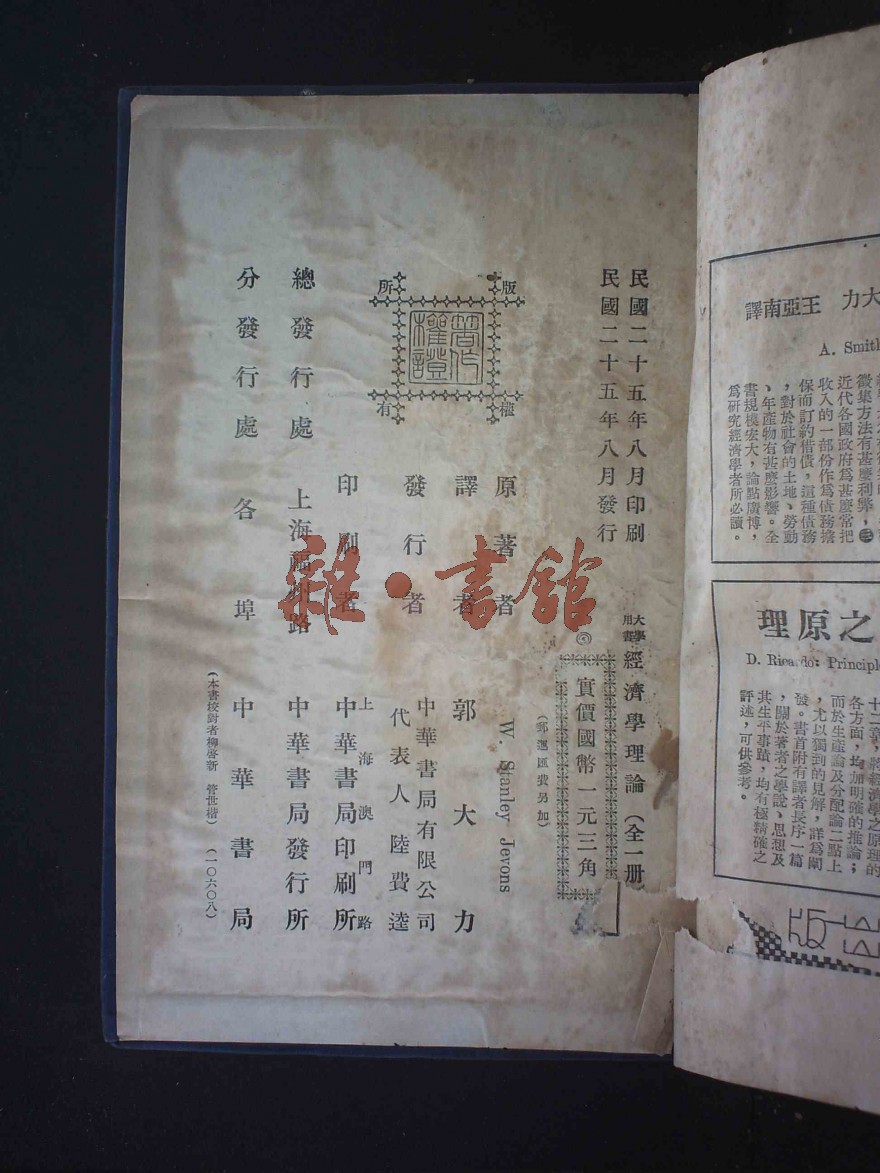 民國二十五年八月印刷
民國二十五年八月發行
大學用書 經濟學理論(全一册)
實價國幣一元三角
(郵運匯費另加)
版權所有
著作權證
原著者 W. Stanley Jevons
譯者 郭大力
發行者 中華書局有限公司
代表人 陸費逵
印刷者 上海澳門路
中華書局印刷所
總發行處 上海福州路 中華書局發行所
分發行處 各埠 中華書局
(本書校對者柳啓新 管世楷)
(一〇六〇八)
雜·書館
大力 王亞南譯
A. Smith
徵集方法有甚麼利弊,㊂
近代各國政府爲甚麼常把
收入的一部份作爲債務擔
保而訂約借債,這種債務
,對於社會的土地、勞動
、年產物有甚麼影響。全
書規模宏大,論點廣博,
爲研究經濟學者所必讀。
之原理
D. Ricardo: Principle
十二章,將經濟學之原理的
各方面,均加明確的推論;
而於生產論及分配論二點上
,尤以獨到的見解,詳爲闡
發。書首附有譯者長序一篇
,關於著者之學說、思想及
其生平事蹟,均有極精確之
評述,可供參考。